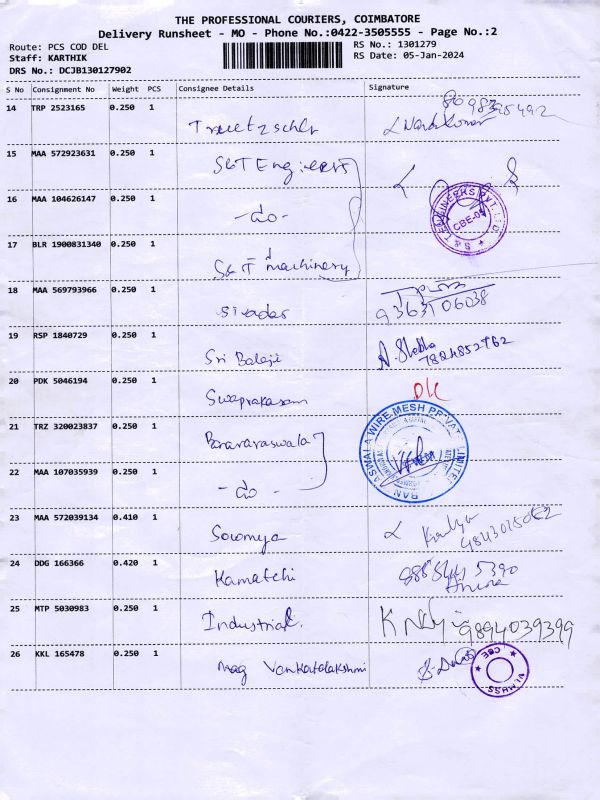 THE PROFESSIONAL COURIERS, COIMBATORE
Delivery Runsheet - MO - Phone No.:0422-3505555 - Page No.:2
Route: PCS COD DEL RS No.: 1301279
Staff: KARTHIK RS Date: 05-Jan-2024
DRS No.: DCJB130127902
S No Consignment No Weight PCS Consignee Details Signature
14 TRP 2523165 0.250 1
15 MAA 572923631 0.250 1 S&T Engineers
16 MAA 104626147 0.250 1 -do-
17 BLR 1900831340 0.250 1 S&T machinery
S& T ENGINEERS PVT. LTD. CBE-05
18 MAA 569793966 0.250 1 9363706038
19 RSP 1840729 0.250 1 Sri Balaji
20 PDK 5046194 0.250 1 Swaprakasam
21 TRZ 320023837 0.250 1
WIRE MESH PRIVATE LIMITED
22 MAA 107035939 0.250 1 -do-
23 MAA 572039134 0.410 1 Sowmya
24 DDG 166366 0.420 1 Kamatchi
25 MTP 5030983 0.250 1 Industrial. 9894039399
26 KKL 165478 0.250 1 mag Venkatalakshmi
CBE